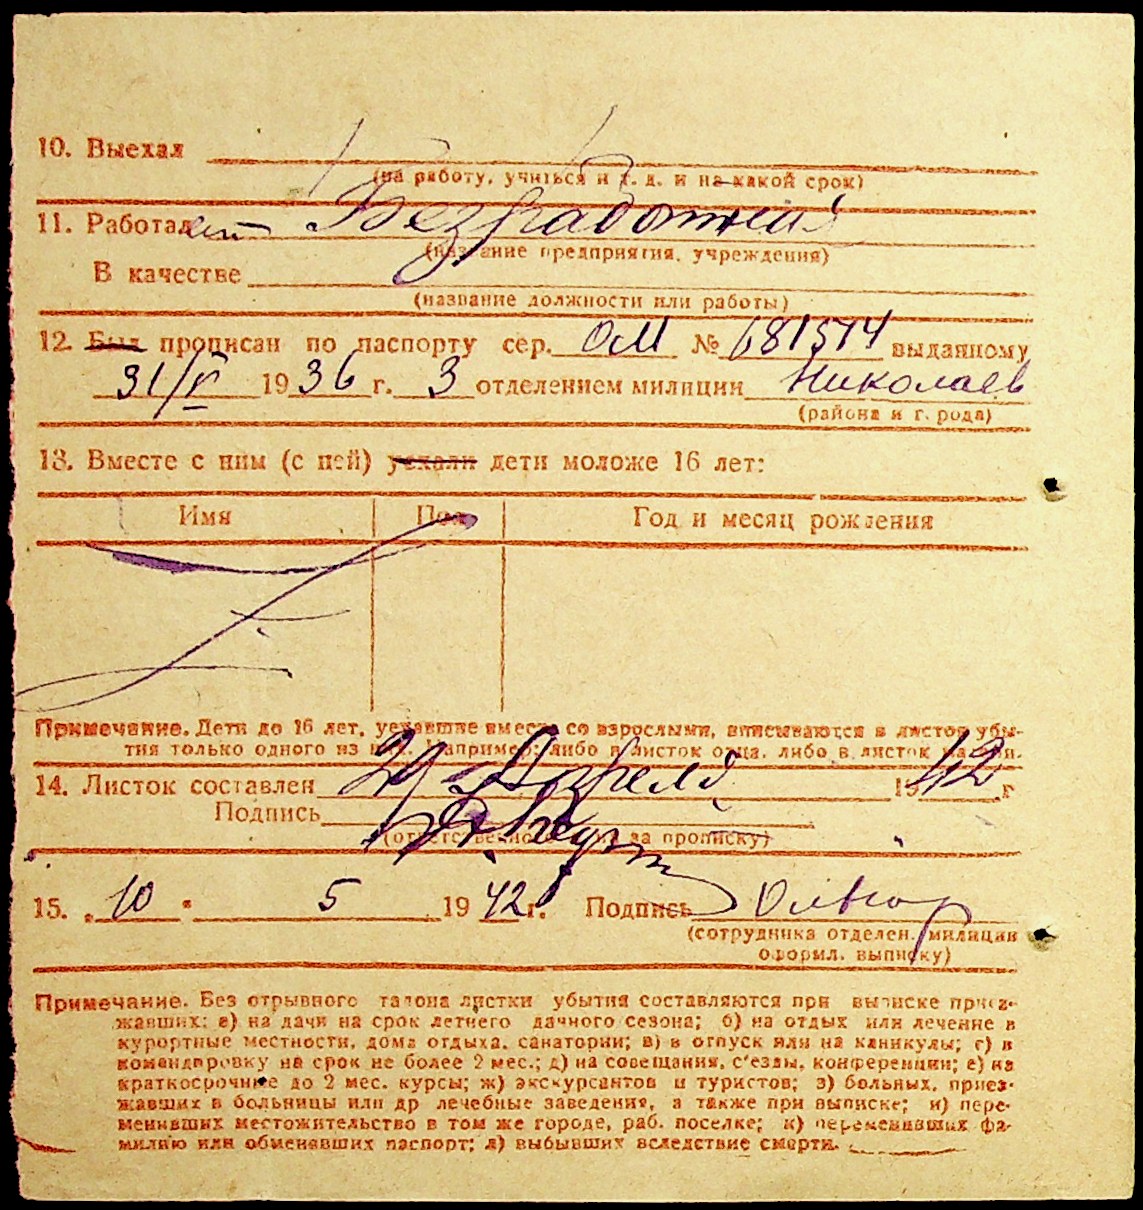 10. Выехал
(на работу, учиться и т. д. и на какой срок)
11. Работает Безработный
(название предприятия, учреждения)
В качестве
(название должности или работы)
12. Был прописан по паспорту сер. ОМ № 681574 выданному
31/V 1936 г. 3 отделением милиции Николаев
(района и города)
13. Вместе с ним (с ней) уехали дети моложе 16 лет:
Имя Пол Год и месяц рождения
Примечание. Дети до 16 лет, уехавшие вместе со взрослыми, вписываются в листок убы-
тия только одного из них. Например: либо в листок отца, либо в листок матери.
14. Листок составлен 29 Апреля 1942 г
Подпись
(ответственного за прописку)
15. „10" 5 1942 г. Подпись
(сотрудника отделен. милиции
оформл. выписку)
Примечание. Без отрывного талона листки убытия составляются при выписке приез-
жавших: а) на дачи на срок летнего дачного сезона; б) на отдых или лечение в
курортные местности, дома отдыха, санатории; в) в отпуск или на каникулы; г) в
командировку на срок не более 2 мес.; д) на совещания, с'езды, конференции; е) на
краткосрочные до 2 мес. курсы; ж) экскурсантов и туристов; з) больных, приез-
жавших в больницы или др лечебные заведения, а также при выписке; и) пере-
менивших местожительство в том же городе, раб. поселке; к) переменивших фа-
милию или обменявших паспорт; л) выбывших вследствие смерти.